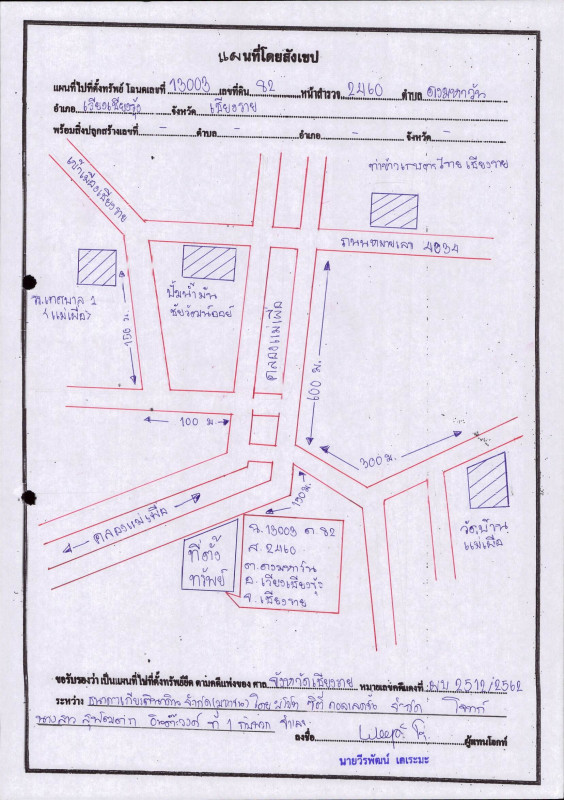 แผนที่โดยสังเขป
แผนที่ไปที่ตั้งทรัพย์ โฉนดเลขที่ 13003 เลขที่ดิน 82 หน้าสำรวจ 2460 ตำบล ดงมหาวัน
อำเภอ เวียงเชียงรุ้ง จังหวัด เชียงราย
พร้อมสิ่งปลูกสร้างเลขที่ - ตำบล - อำเภอ - จังหวัด -
เข้าเมืองเชียงราย
เชียงราย
ถนนหมายเลข 4034
ร.ร.เทศบาล 1
<แม่เผื่อ>
ปั้มน้ำมัน
150 ม.
คลองแม่เผื่อ
600 ม.
100 ม.
300 ม.
150 ม.
คลองแม่เผื่อ
วัดบ้าน
แม่เผื่อ
ที่ตั้ง
ทรัพย์
ฉ.13003 ด.82
ส.2460
ต.ดงมหาวัน
อ.เวียงเชียงรุ้ง
จ.เชียงราย
ขอรับรองว่า เป็นแผนที่ไปที่ตั้งทรัพย์ยึด ตามคดีแพ่งของ ศาล จังหวัดเชียงราย หมายเลขคดีแดงที่ ผบ 2512/2562
ระหว่าง จำกัด โจทก์
นางสาว ที่ 1 กับพวก จำเลย
ลงชื่อ ผู้แทนโจทก์
นายวีรพัฒน์ เดเระมะ